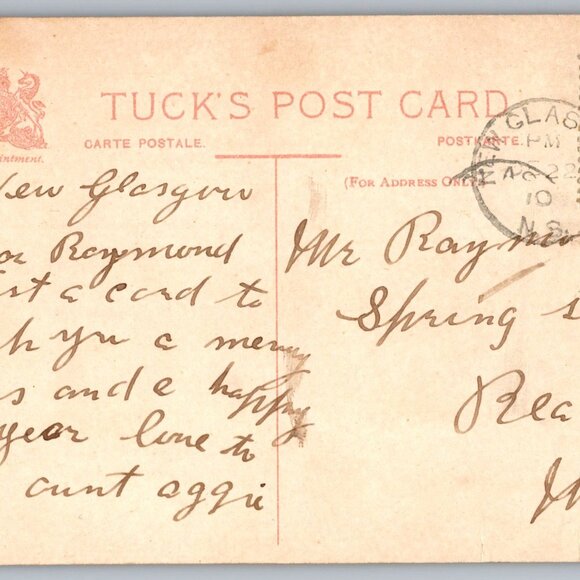 TUCK'S POST CARD
CARTE POSTALE.
POSTKARTE.
(FOR ADDRESS ONLY)
NEW GLAS
PM
22
10
N.S.
New Glasgow
Raymond
a card to
yu a merry
and e happy
year love to
aunt aggie
Mr Raymon
Spring
Rea